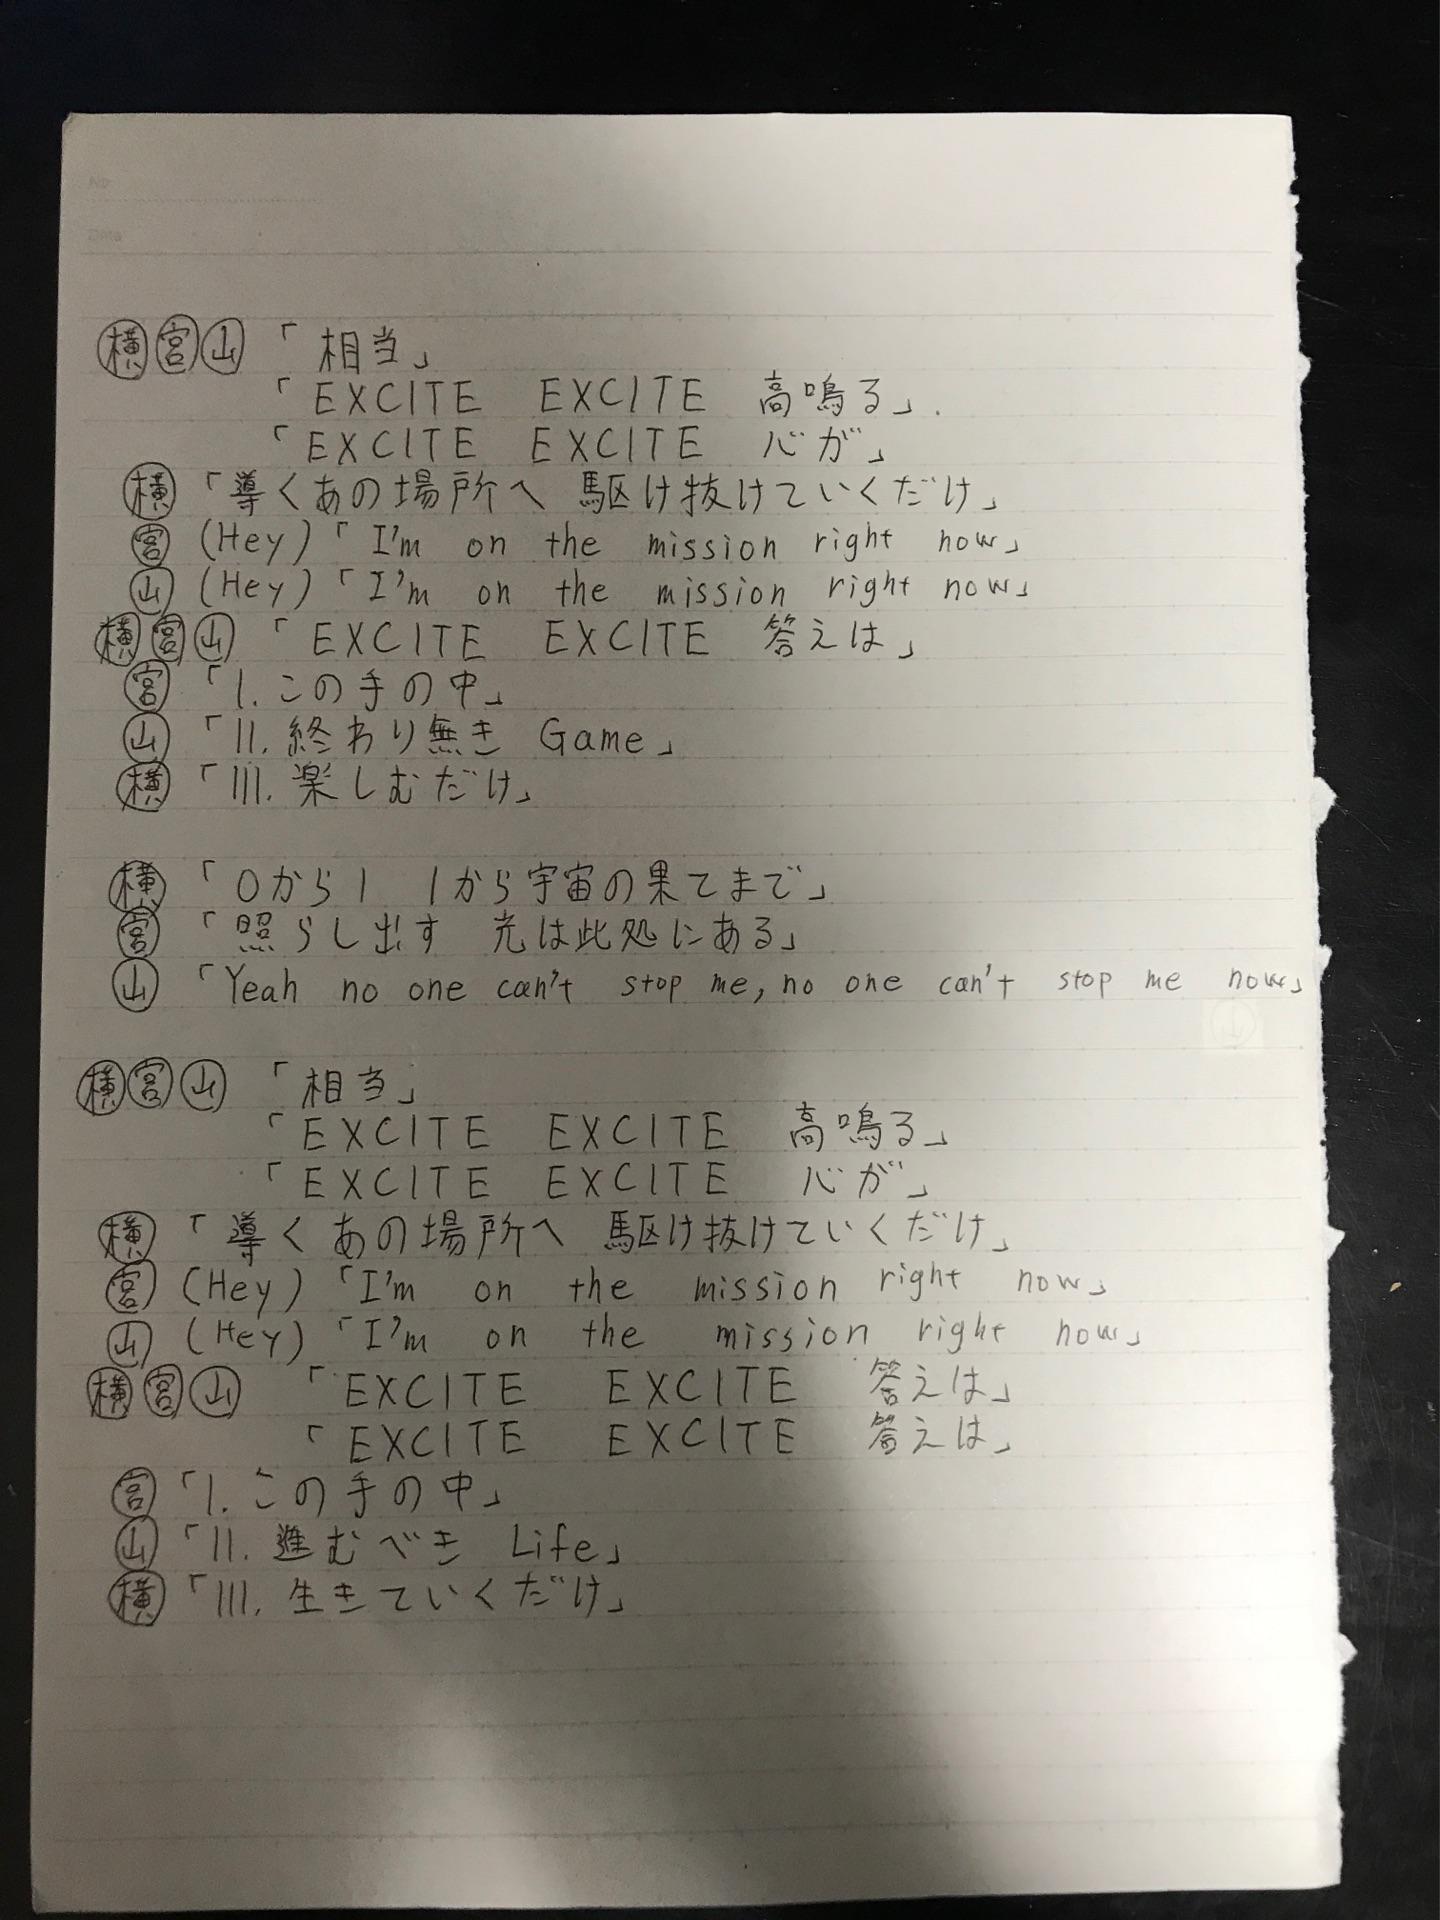 No.
Date
横 宮 山 「相当」
「EXCITE EXCITE 高鳴る」.
「EXCITE EXCITE 心が」
横 「導くあの場所へ 駆け抜けていくだけ」
宮 (Hey)「I'm on the mission right now」
山 (Hey)「I'm on the mission right now」
横 宮 山 「EXCITE EXCITE 答えは」
宮 「I. この手の中」
山 「II. 終わり無き Game」
横 「III. 楽しむだけ」
横 「0から1 1から宇宙の果てまで」
宮 「照らし出す 光は此処にある」
山 「Yeah no one can't stop me, no one can't stop me now」
横 宮 山 「相当」
「EXCITE EXCITE 高鳴る」
「EXCITE EXCITE 心が」
横 「導くあの場所へ 駆け抜けていくだけ」
宮 (Hey)「I'm on the mission right now」
山 (Hey)「I'm on the mission right now」
横 宮 山 「EXCITE EXCITE 答えは」
「EXCITE EXCITE 答えは」
宮 「I. この手の中」
山 「II. 進むべき Life」
横 「III. 生きていくだけ」